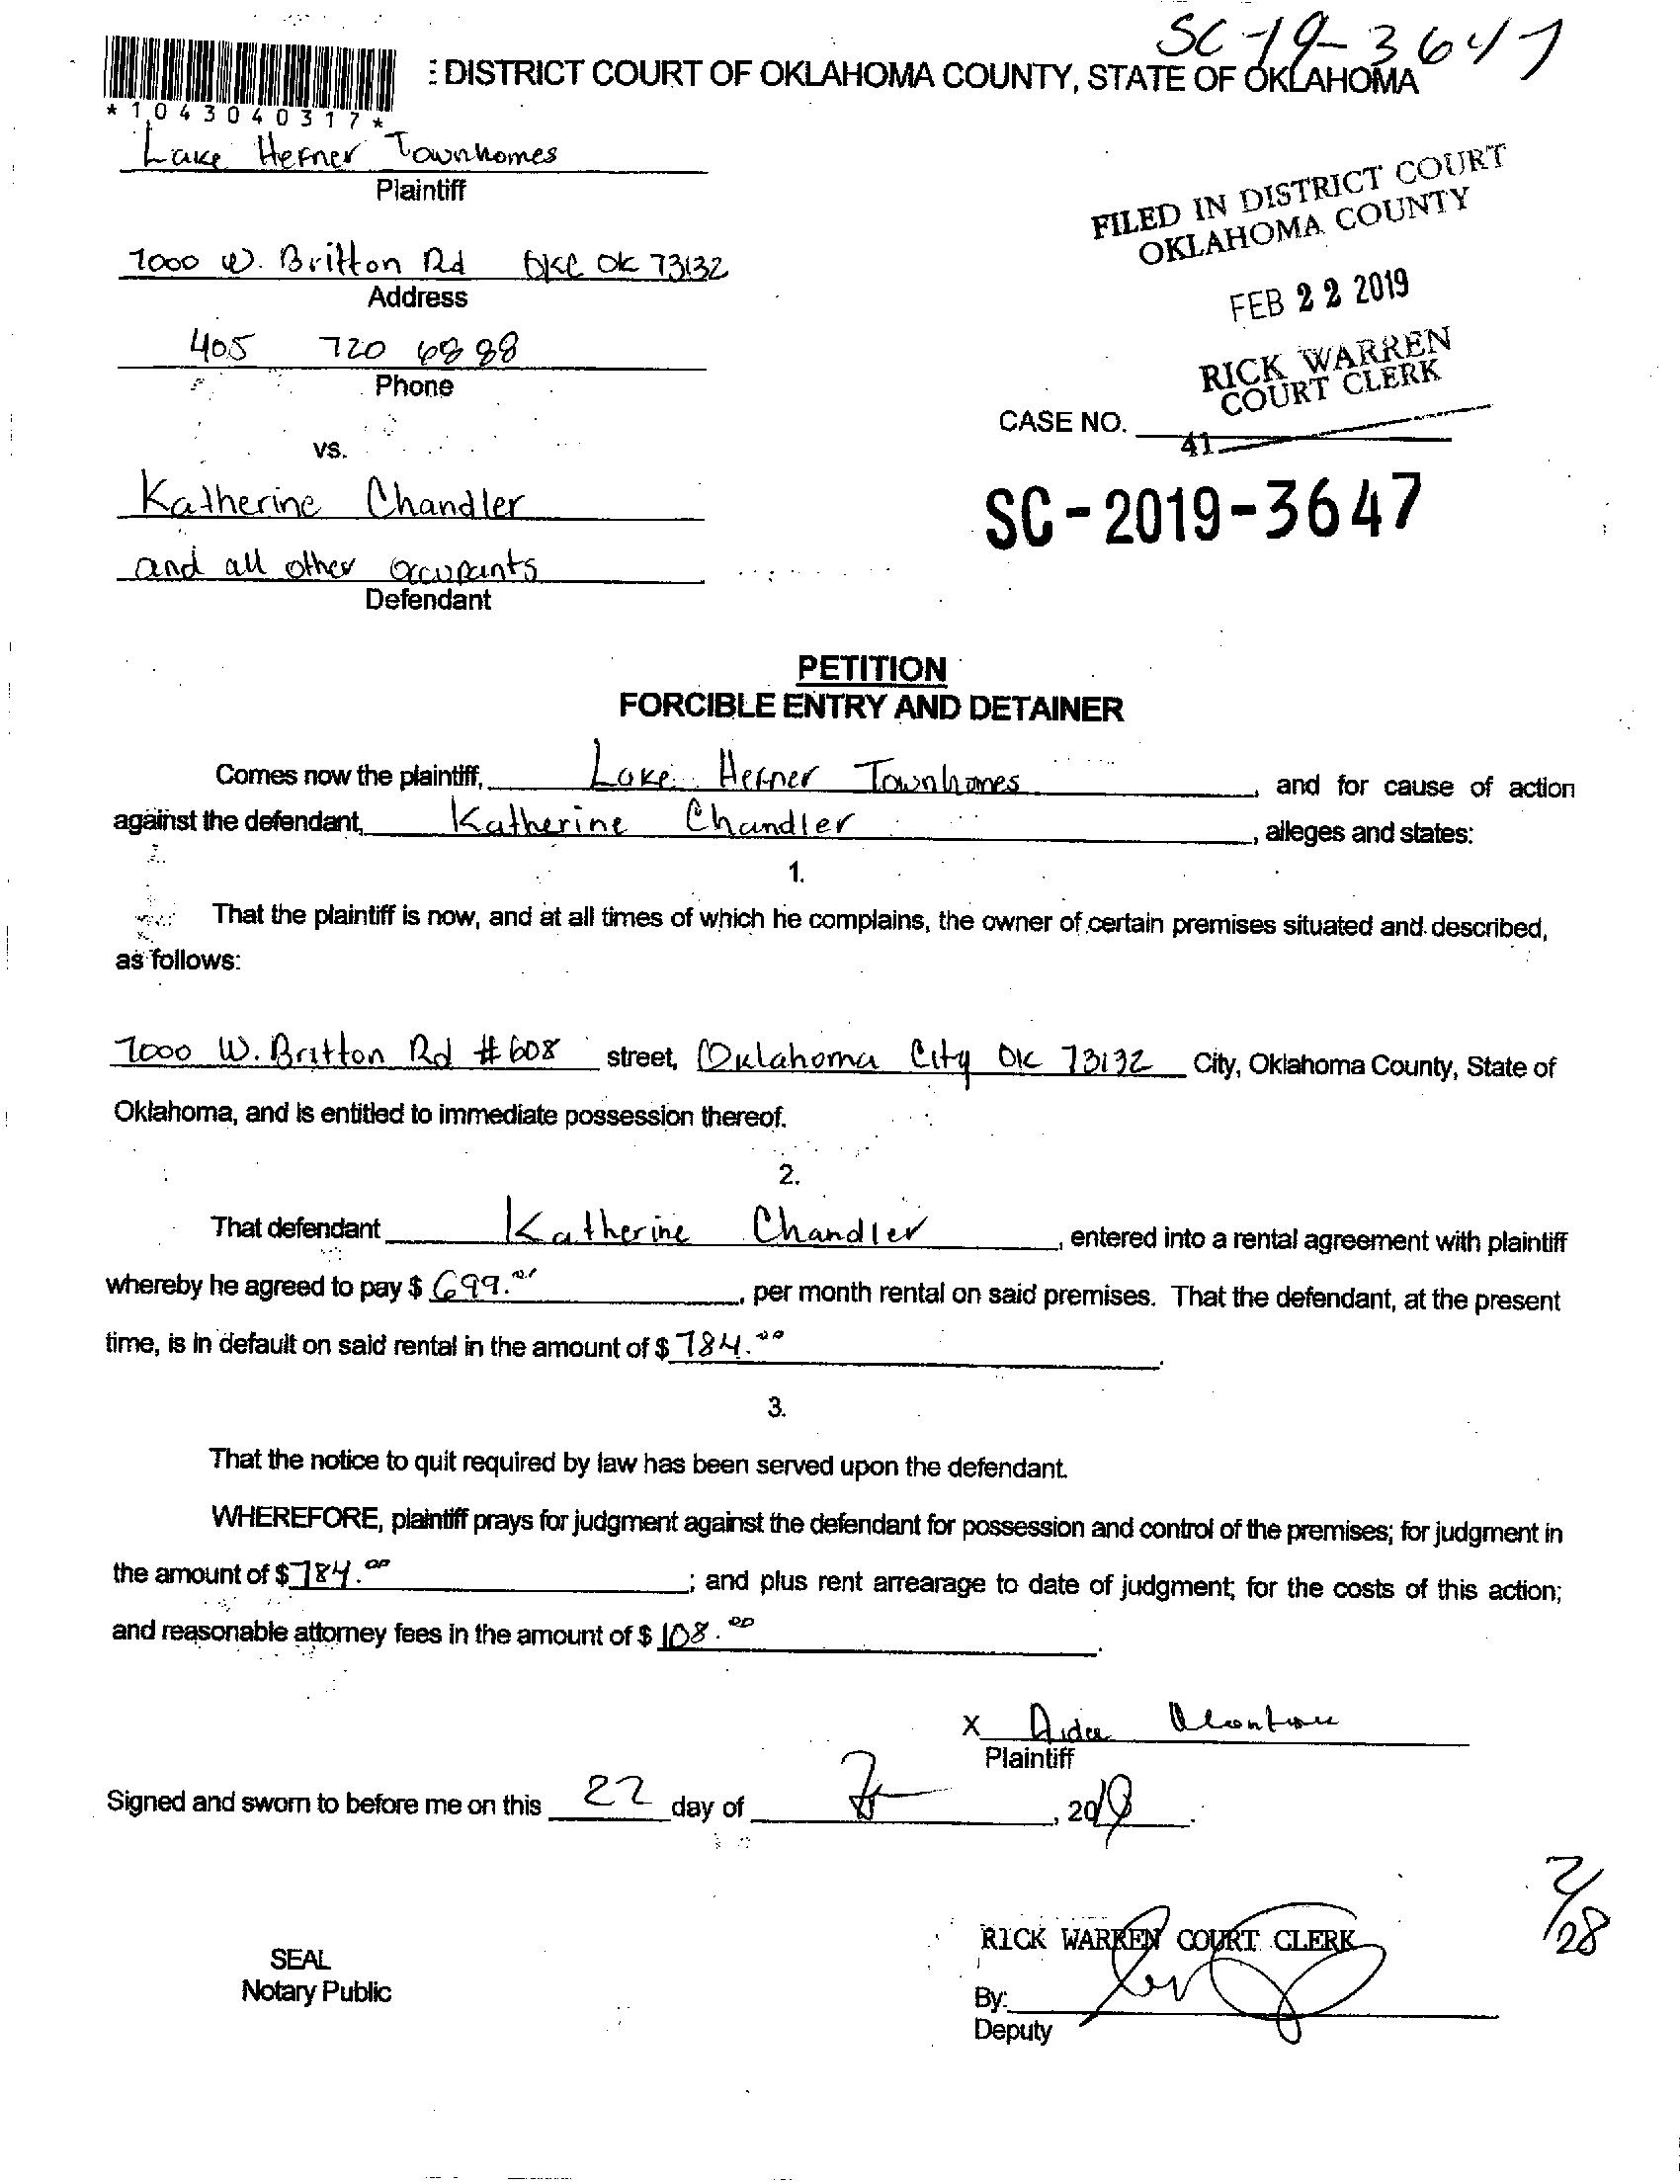 SC-19-3647
: DISTRICT COURT OF OKLAHOMA COUNTY, STATE OF OKLAHOMA
*1043040317*
Lake Hefner Townhomes
Plaintiff
FILED IN DISTRICT COURT
OKLAHOMA COUNTY
7000 W. Britton Rd OKC OK 73132
Address
FEB 22 2019
405 720 6888
Phone
RICK WARREN
COURT CLERK
CASE NO.
41
vs.
Katherine Chandler
SC-2019-3647
and all other occupants
Defendant
PETITION
FORCIBLE ENTRY AND DETAINER
Comes now the plaintiff, Lake Hefner Townhomes, and for cause of action
against the defendant, Katherine Chandler, alleges and states:
1.
That the plaintiff is now, and at all times of which he complains, the owner of certain premises situated and described,
as follows:
7000 W. Britton Rd #608 street, Oklahoma City OK 73132 City, Oklahoma County, State of
Oklahoma, and is entitled to immediate possession thereof.
2.
That defendant Katherine Chandler, entered into a rental agreement with plaintiff
whereby he agreed to pay $ 699.00, per month rental on said premises. That the defendant, at the present
time, is in default on said rental in the amount of $ 784.00.
3.
That the notice to quit required by law has been served upon the defendant.
WHEREFORE, plaintiff prays for judgment against the defendant for possession and control of the premises; for judgment in
the amount of $784.00; and plus rent arrearage to date of judgment; for the costs of this action;
and reasonable attorney fees in the amount of $ 108.00.
X
Plaintiff
Signed and sworn to before me on this 22 day of , 2019.
2/28
RICK WARREN COURT CLERK
SEAL
Notary Public
By:
Deputy